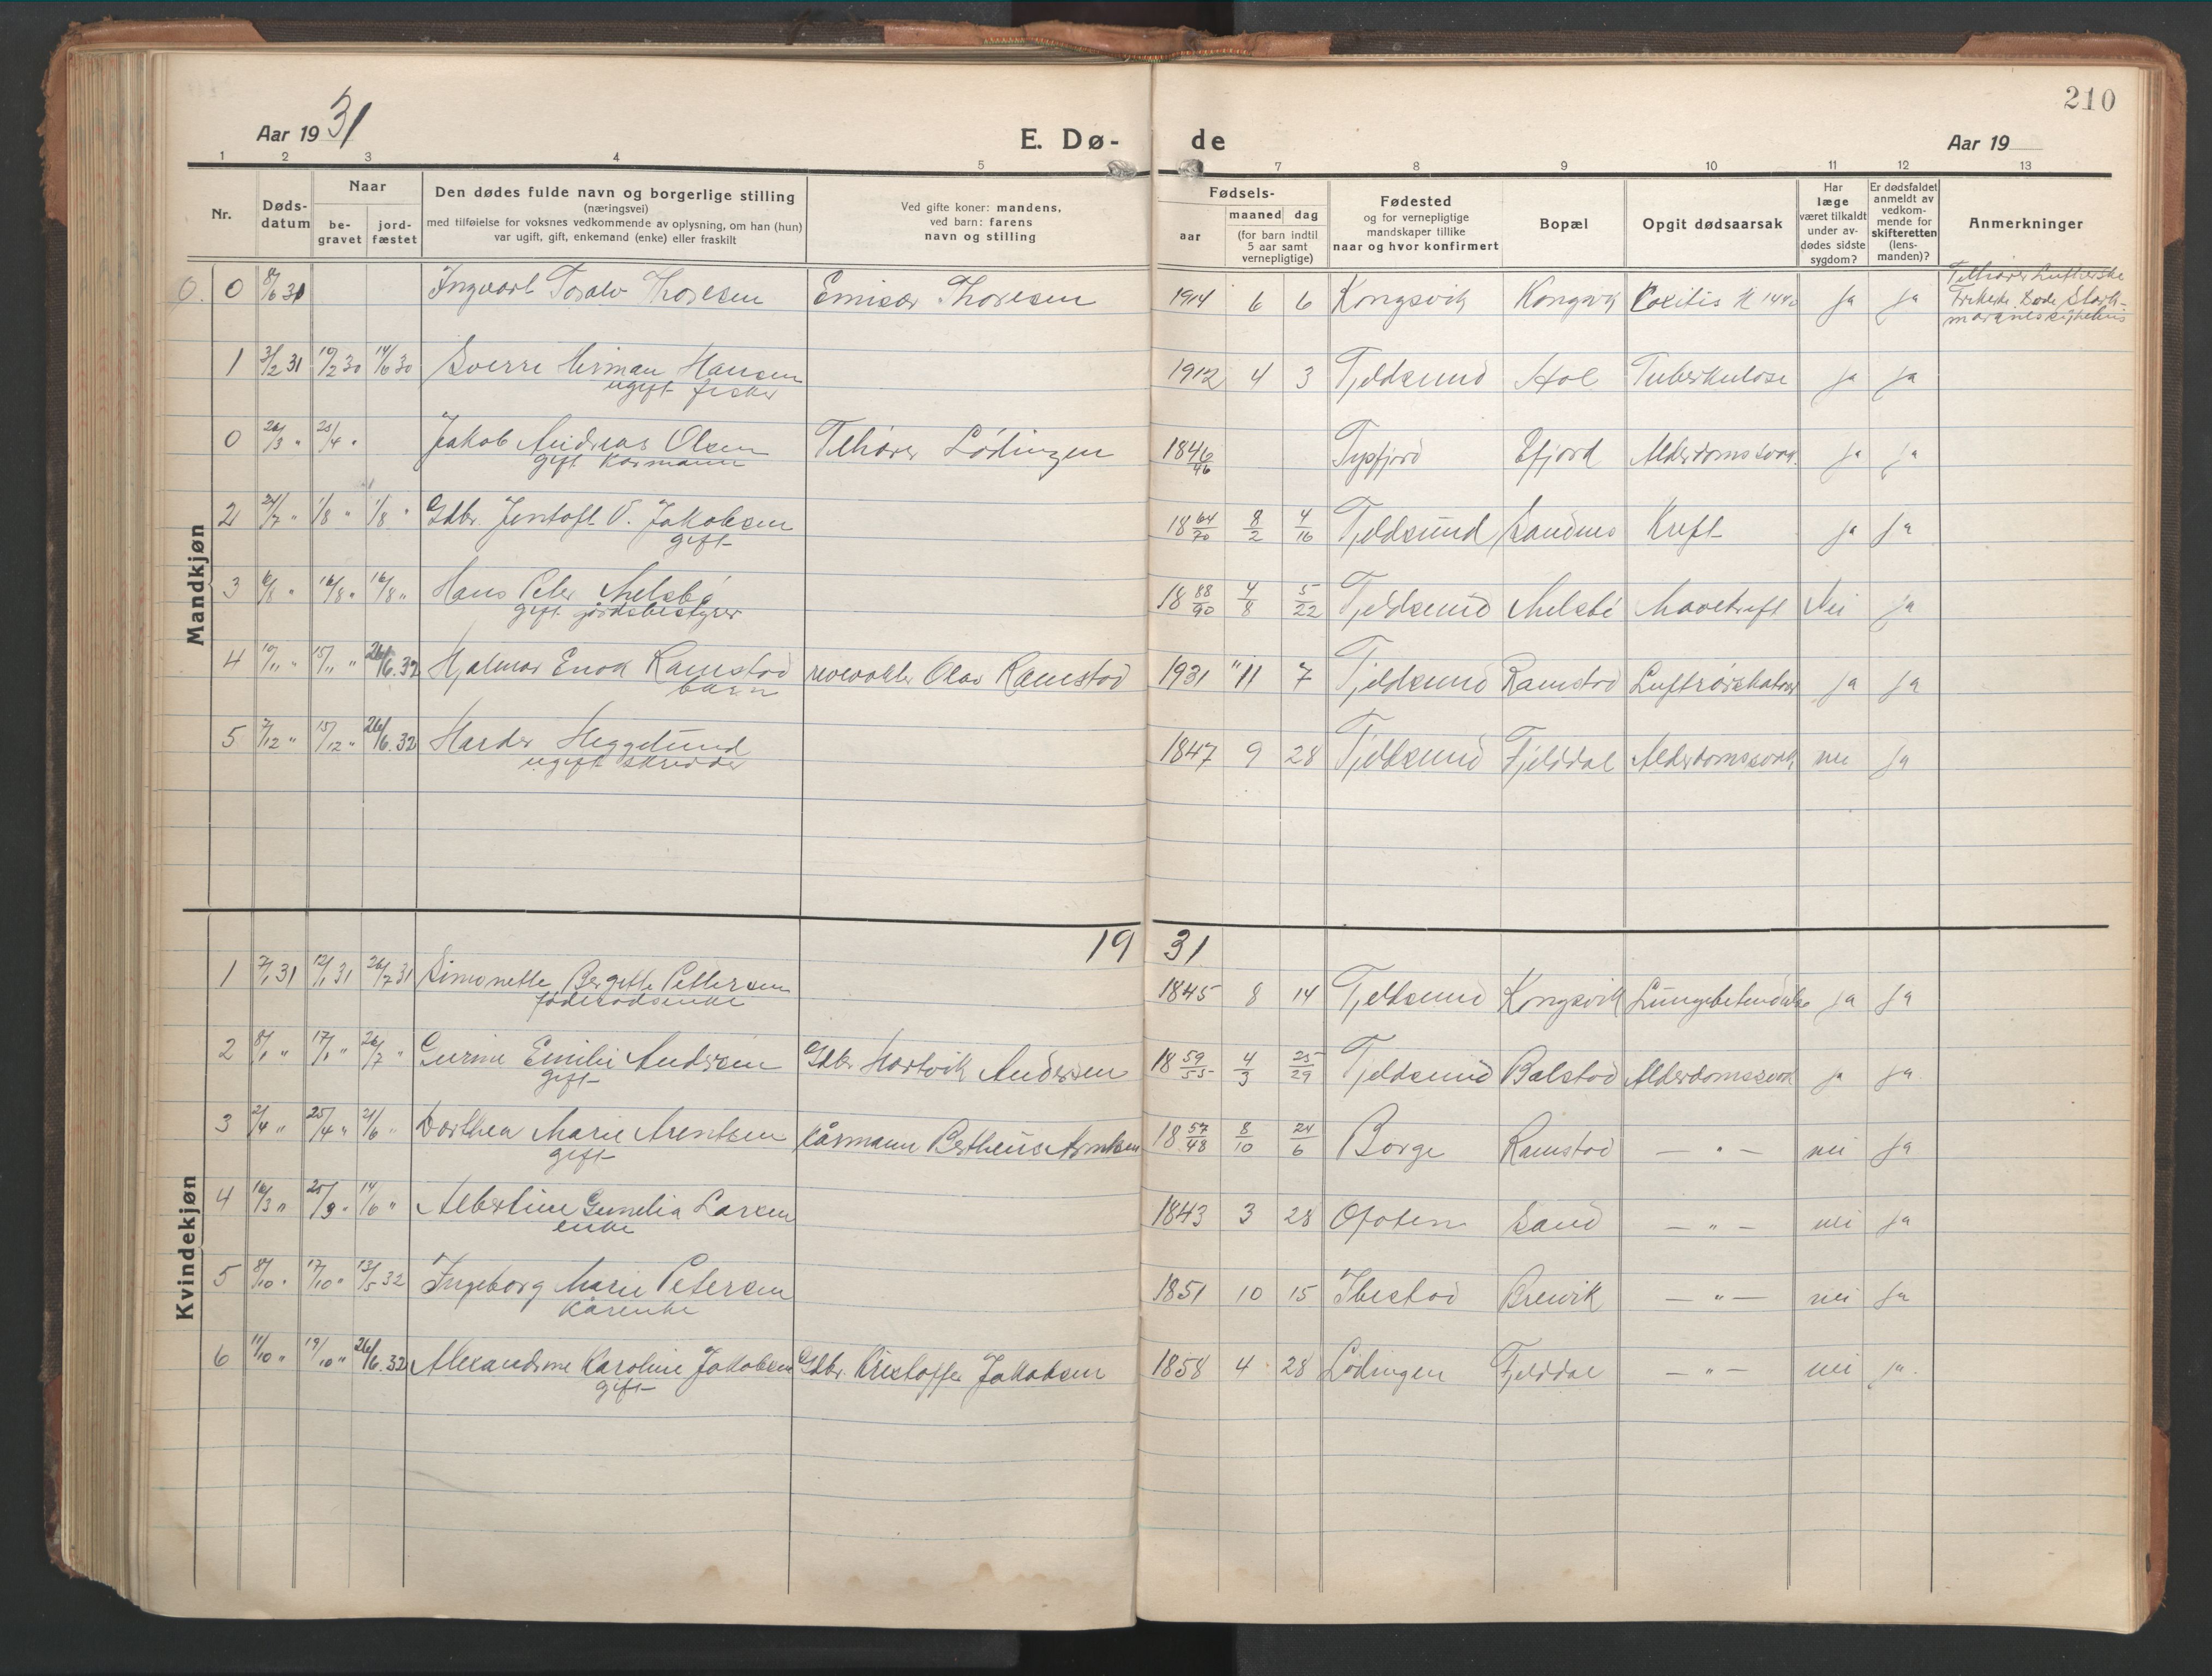 210
Aar 1931
E. Dø- de
Aar 19
1 2 3 4 5 7 8 9 10 11 12 13
Nr.
Døds-datum
Naar
be-gravet
jord-fæstet
Den dødes fulde navn og borgerlige stilling
(næringsvei)
med tilføielse for voksnes vedkommende av oplysning, om han (hun)
var ugift, gift, enkemand (enke) eller fraskilt
Ved gifte koner: mandens,
ved barn: farens
navn og stilling
Fødsels-
aar
maaned dag
(for barn indtil
5 aar samt
vernepligtige)
Fødested
og for vernepligtige
mandskaper tillike
naar og hvor konfirmert
Bopæl
Opgit dødsaarsak
Har
læge
været tilkaldt
under av-
dødes sidste
sygdom?
Er dødsfaldet
anmeldt av
vedkom-
mende for
skifteretten
(lens-
manden)?
Anmerkninger
Mandkjøn
0. 0 8/6 31 Ingvart Toralv Thoresen Emisær Thoresen 1914 6 6 Kongsvik Kongsvik Coxitis ja ja
Tilhører Lutherske
Frikirke. Døde
1 3/2 31 10/2 30 14/6 30 Sverre Herman Hansen 1912 4 3 Tjeldsund Hol Tuberkulose ja ja
ugift fisker
0 26/3 " 23/4 " Jakob Andreas Olsen Tilhører Lødingen 1846/46 Tysfjord Efjord Alderdomssvak. ja ja
gift kårmann
2 24/7 " 1/8 " 1/8 " Gdbr. Jentoft O. Jakobsen 18 64/70 8/2 4/16 Tjeldsund Sandnes Kreft ja ja
gift
3 6/8 " 16/8 " 16/8 " Hans Peter Melsbø 18 88/90 4/8 5/22 Tjeldsund Melsbø Mavekreft Nei ja
gift jordbestyrer
4 10/11 " 15/11 " 26/6.32 Hjalmar Enok Ramstad Olav Ramstad 1931 " 11 7 Tjeldsund Ramstad Luftrørskatarr ja ja
barn
5 7/12 " 15/12 " 26/6.32 Harder Heggelund 1847 9 28 Tjeldsund Fjelddal Alderdomssvak nei ja
ugift skredder
1931
Kvindekjøn
1 7/1 31 12/1 31 26/7 31 Simonette Bergitte Pettersen 1845 8 14 Tjeldsund Kongsvik Lungebetendelse ja ja
føderådsenke
2 8/1 " 17/1 " 26/7 " Gurine Emilie Andersen Gdbr. Hartvik Andersen 18 59/55 4/3 25/29 Tjeldsund Balstad Alderdomssvak ja ja
gift
3 2/4 " 25/4 " 21/6 " Dorthea Marie Arentsen Kårmann Bertheus Arntsen 18 57/48 8/10 24/6 Borge Ramstad — " — nei ja
gift
4 16/3 " 25/3 " 14/6 " Albertine Gunelia Larsen 1843 3 28 Ofoten Sand — " — nei ja
enke
5 8/10 " 17/10 " 13/5 32 Ingeborg Marie Petersen 1851 10 15 Ibestad Breivik — " — nei ja
Kårenke
6 11/10 " 19/10 " 26/6.32 Alexandrine Karoline Jakobsen Gdbr. Kristoffer Jakobsen 1858 4 28 Lødingen Fjelddal — " — nei ja.
gift